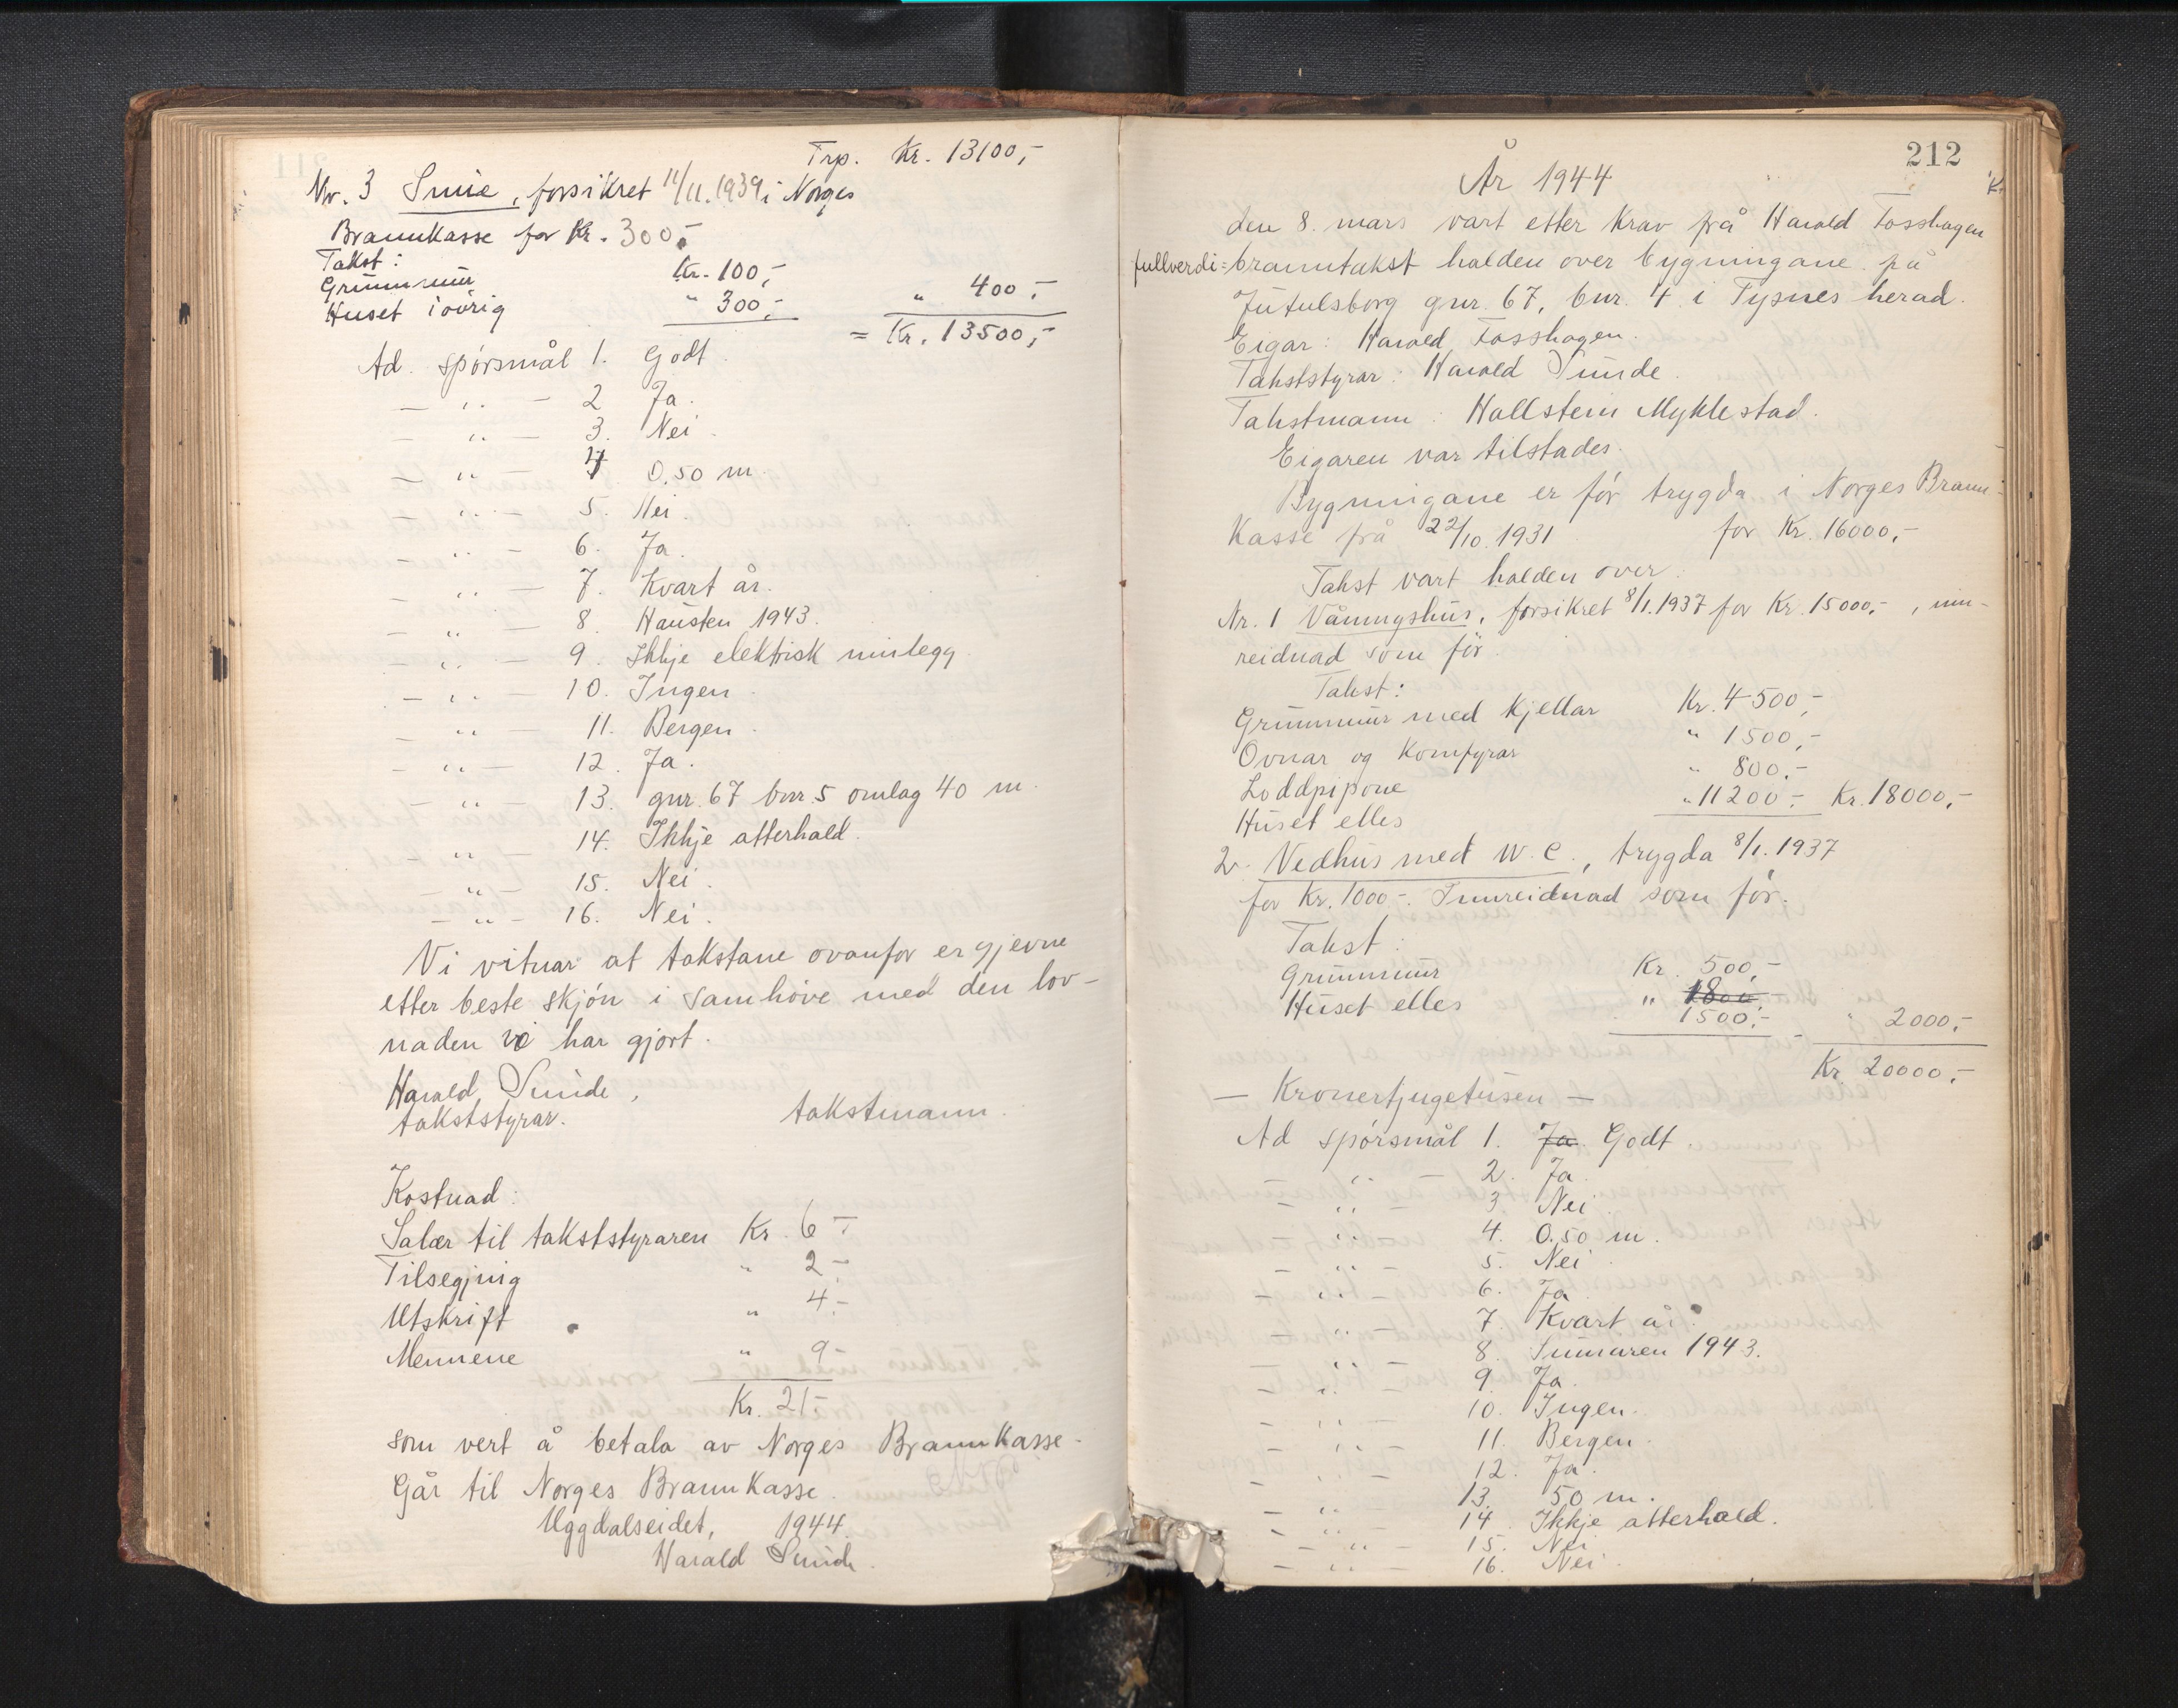 Trp. Kr. 13100,-
Nr. 3 Smie, forsikret 11/11.1939 i Norges
Brannkasse for Kr. 300,-
Takst:
Grunnmur Kr. 100,-
Huset i øvrig " 300,- " 400,-
= Kr. 13500,-
Ad. spørsmål 1. Godt.
— " — 2 Ja.
— " — 3. Nei.
— " — 4 0.50 m.
— " — 5. Nei.
— " — 6. Ja.
— " — 7. Kvart år.
— " — 8. Hausten 1943.
— " — 9. Ikkje elektrisk innlegg.
— " — 10. Ingen.
— " — 11. Bergen.
— " — 12. Ja.
— " — 13. gnr. 67 bnr. 5 omlag 40 m.
— " — 14. Ikkje atterhald.
— " — 15. Nei.
— " — 16. Nei.
Vi vitnar at takstane ovanfor er gjevne
etter beste skjøn i samhøve med den lov-
naden vi har gjort.
Harald Sunde,
takststyrar. takstmann.
Kostnad:
Salær til takststyraren Kr. 6,-
Tilsegjing " 2,-
Utskrift " 4,-
Mennene " 9-
Kr. 21,-
som vert å betala av Norges Brannkasse.
Går til Norges Brannkasse.
Uggdalseidet, 1944.
Harald Sunde.
212
År 1944
den 8. mars vart etter krav frå Harald Fosshagen
fullverdi=branntakst halden over bygningane på
Jutulsborg gnr. 67, bnr. 4 i Tysnes herad.
Eigar: Harald Fosshagen.
Takststyrar: Harald Sunde.
Takstmann: Hallstein Myklestad.
Eigaren var tilstades.
Bygningane er før trygda i Norges Brann-
kasse frå 22/10.1931 for Kr. 16000,-
Takst vart halden over:
Nr. 1 Våningshus, forsikret 8/1.1937 for Kr. 15000,-, inn-
reidnad som før.
Takst:
Grunnmur med kjellar Kr. 4500,-
Ovnar og komfyrar " 1500,-
Loddpipone " 800,-
Huset elles " 11200,- Kr. 18000,-
2. Vedhus med W.C., trygda 8/1.1937
for Kr. 1000-. Innreidnad som før.
Takst:
Grunnmur Kr. 500,-
Huset elles " 1800,-
1500,- " 2000,-
Kr. 20000,-
— Kronertjugetusen —
Ad spørsmål 1. Ja. Godt.
— " — 2. Ja.
— " — 3 Nei.
— " — 4. 0.50 m.
— " — 5. Nei
— " — 6. Ja.
— " — 7. Kvart år.
— " — 8. Summaren 1943.
— " — 9. Ja.
— " — 10. Ingen.
— " — 11. Bergen.
— " — 12. Ja.
— " — 13. 50 m.
— " — 14. Ikkje atterhald.
— " — 15. Nei
— " — 16. Nei.